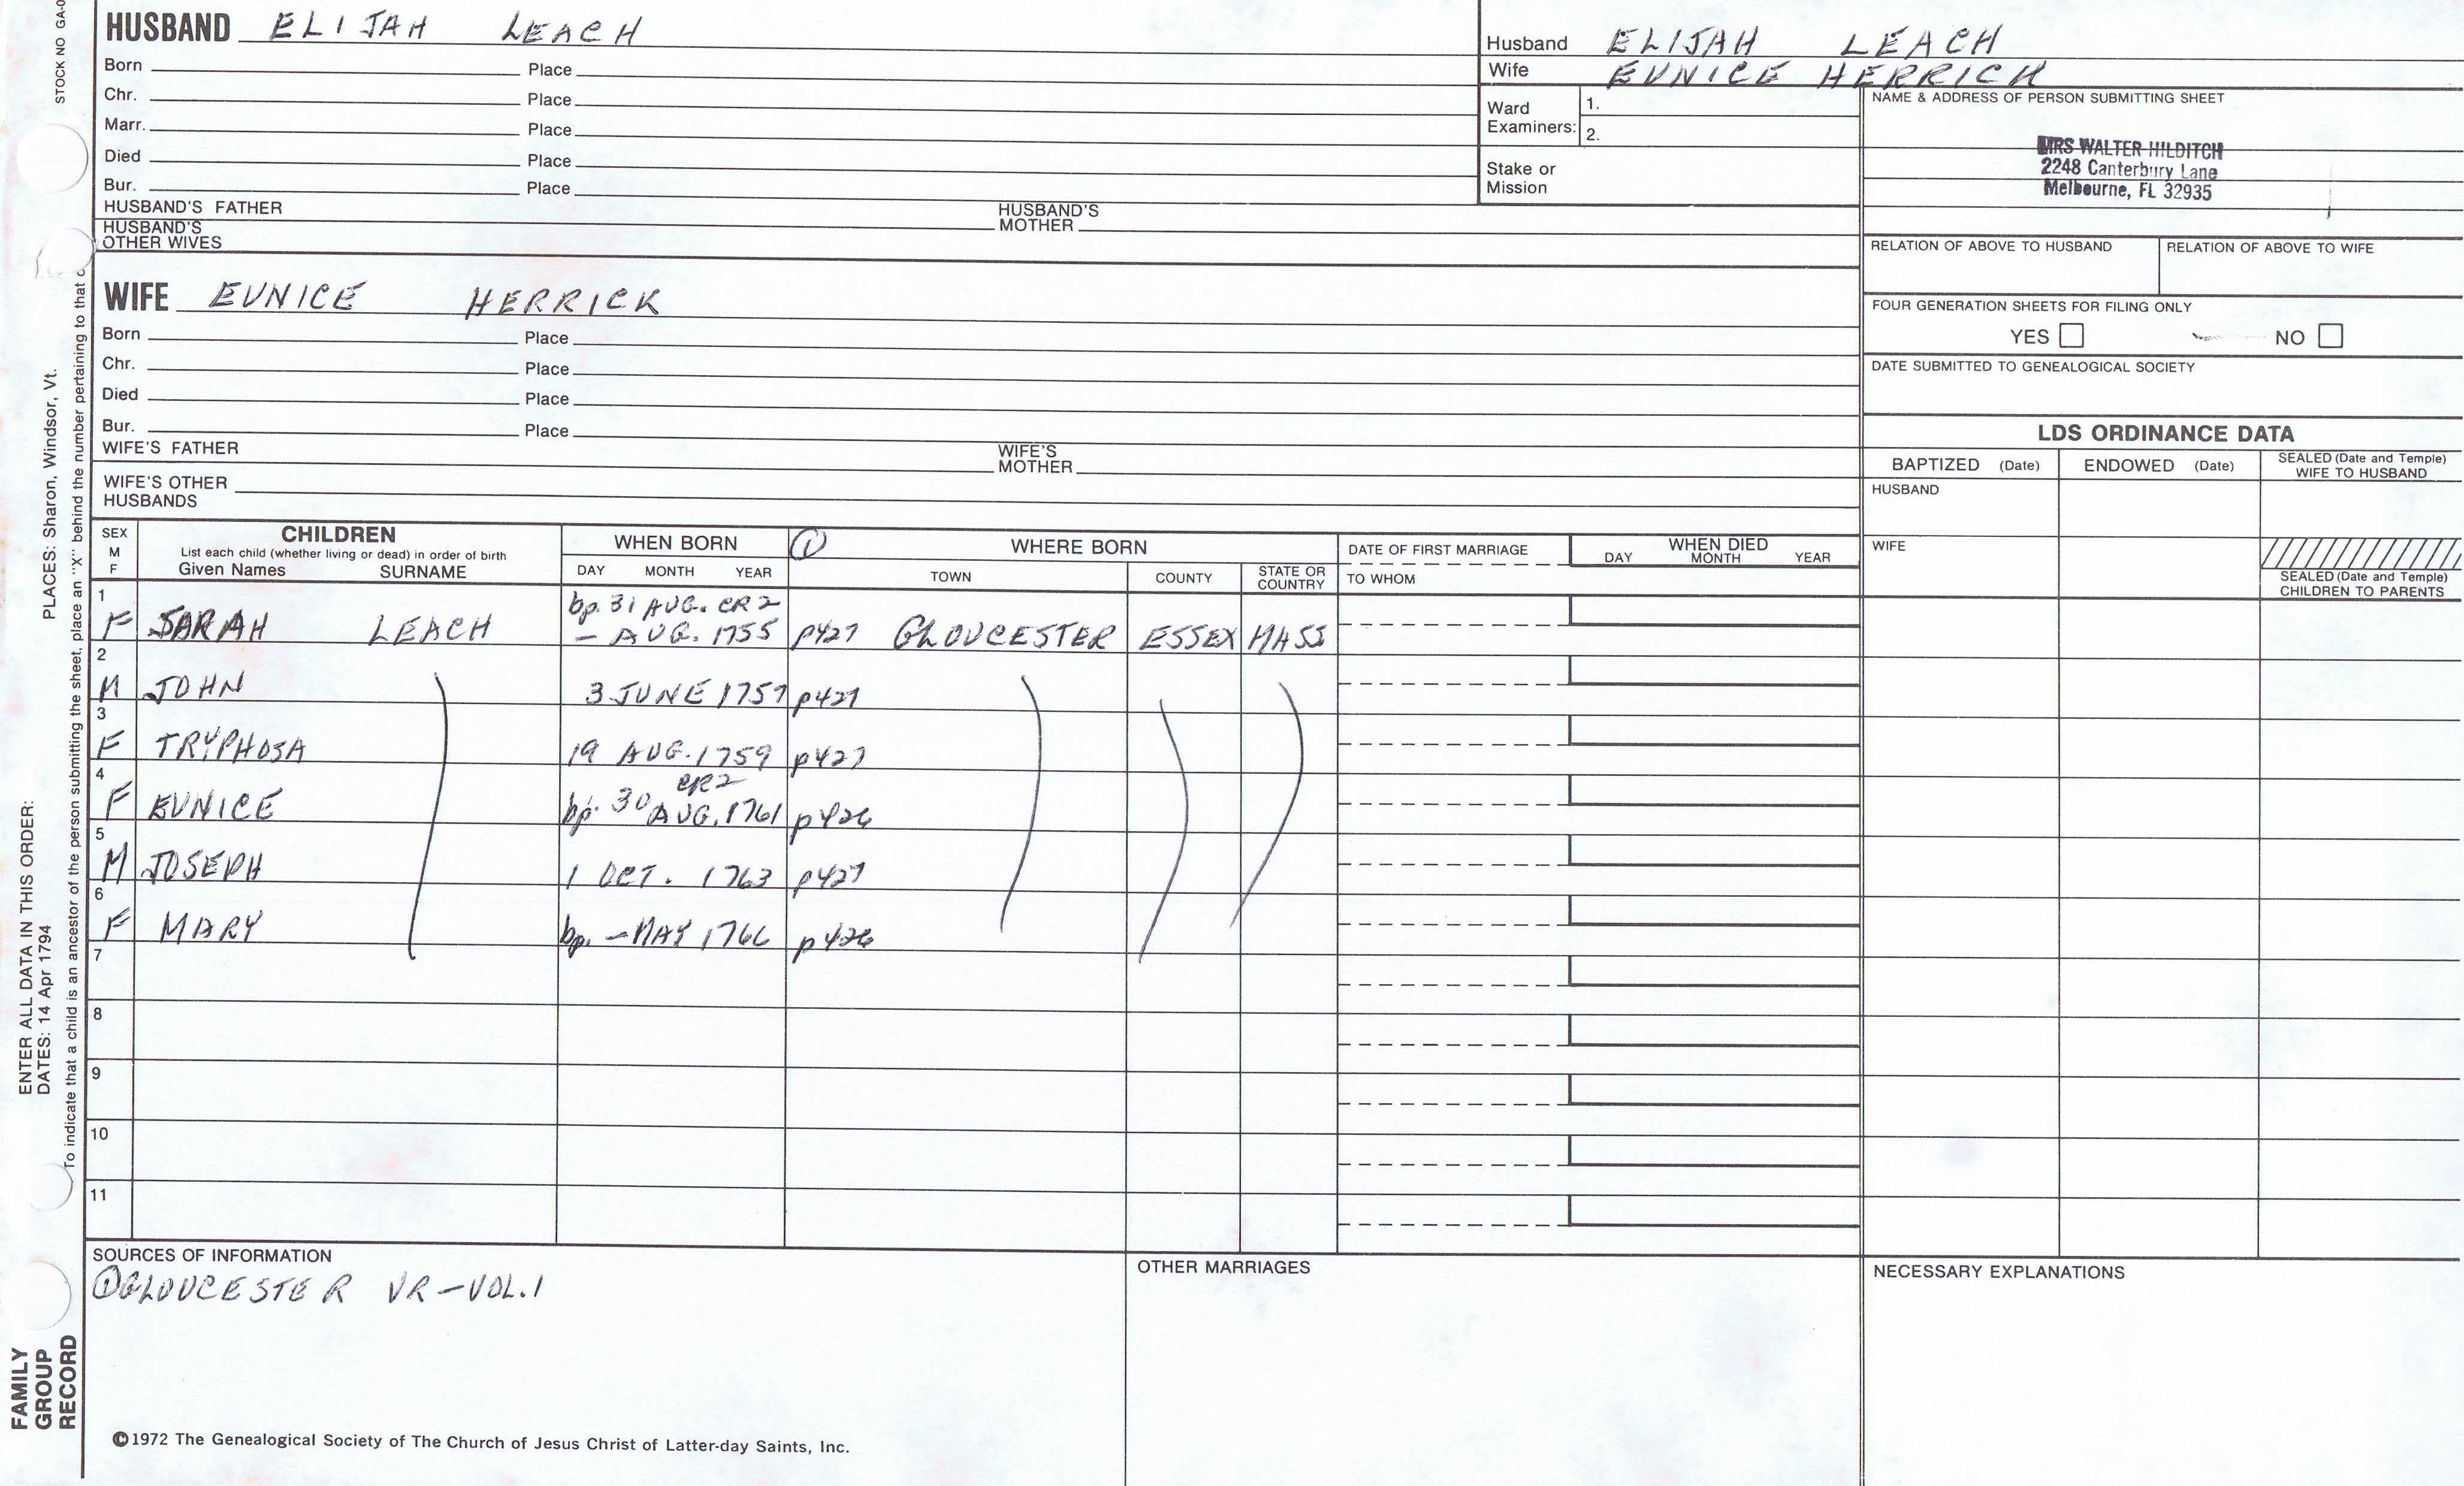 STOCK NO GA-0
HUSBAND ELIJAH LEACH
Born Place
Chr. Place
Marr. Place
Died Place
Bur. Place
HUSBAND'S FATHER HUSBAND'S MOTHER
HUSBAND'S OTHER WIVES
Husband ELIJAH LEACH
Wife EUNICE HERRICK
Ward Examiners: 1.
2.
Stake or Mission
NAME & ADDRESS OF PERSON SUBMITTING SHEET
MRS WALTER HILDITCH
2248 Canterbury Lane
Melbourne, FL 32935
RELATION OF ABOVE TO HUSBAND RELATION OF ABOVE TO WIFE
FOUR GENERATION SHEETS FOR FILING ONLY
YES NO
DATE SUBMITTED TO GENEALOGICAL SOCIETY
WIFE EUNICE HERRICK
Born Place
Chr. Place
Died Place
Bur. Place
WIFE'S FATHER WIFE'S MOTHER
WIFE'S OTHER HUSBANDS
LDS ORDINANCE DATA
BAPTIZED (Date) ENDOWED (Date) SEALED (Date and Temple) WIFE TO HUSBAND
HUSBAND
WIFE
SEALED (Date and Temple) CHILDREN TO PARENTS
SEX M F
CHILDREN
List each child (whether living or dead) in order of birth
Given Names SURNAME
WHEN BORN
DAY MONTH YEAR
① WHERE BORN
TOWN COUNTY STATE OR COUNTRY
DATE OF FIRST MARRIAGE
TO WHOM
WHEN DIED
DAY MONTH YEAR
1 bp. 31 AUG. CR2
F SARAH LEACH – AUG. 1755 p427 GLOUCESTER ESSEX MASS
2
M JOHN 3 JUNE 1757 p427
3
F TRYPHOSA 19 AUG. 1759 p427
4 CR2
F EUNICE bp. 30 AUG. 1761 p426
5
M JOSEPH 1 OCT. 1763 p427
6
F MARY bp. – MAY 1766 p426
7
8
9
10
11
SOURCES OF INFORMATION
① GLOUCESTER VR – VOL. 1
OTHER MARRIAGES
NECESSARY EXPLANATIONS
©1972 The Genealogical Society of The Church of Jesus Christ of Latter-day Saints, Inc.
FAMILY
GROUP
RECORD
ENTER ALL DATA IN THIS ORDER:
DATES: 14 Apr 1794 PLACES: Sharon, Windsor, Vt.
To indicate that a child is an ancestor of the person submitting the sheet, place an "X" behind the number pertaining to that c